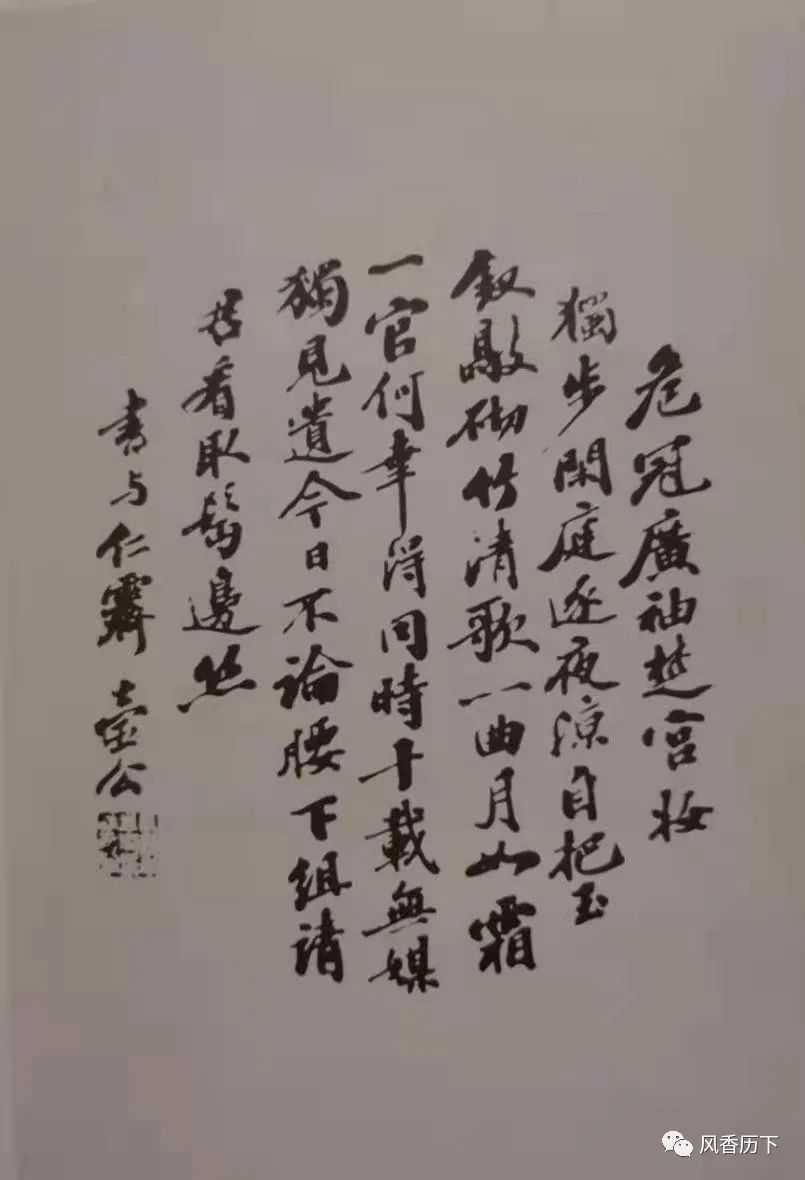 危冠廣袖楚宮妝
獨步閑庭逐夜涼自把玉
釵敲砌竹清歌一曲月如霜
一官何幸得同時十載無媒
獨見遺今日不論腰下組請
君看取鬢邊絲
書与仁霽 壺公
风香历下